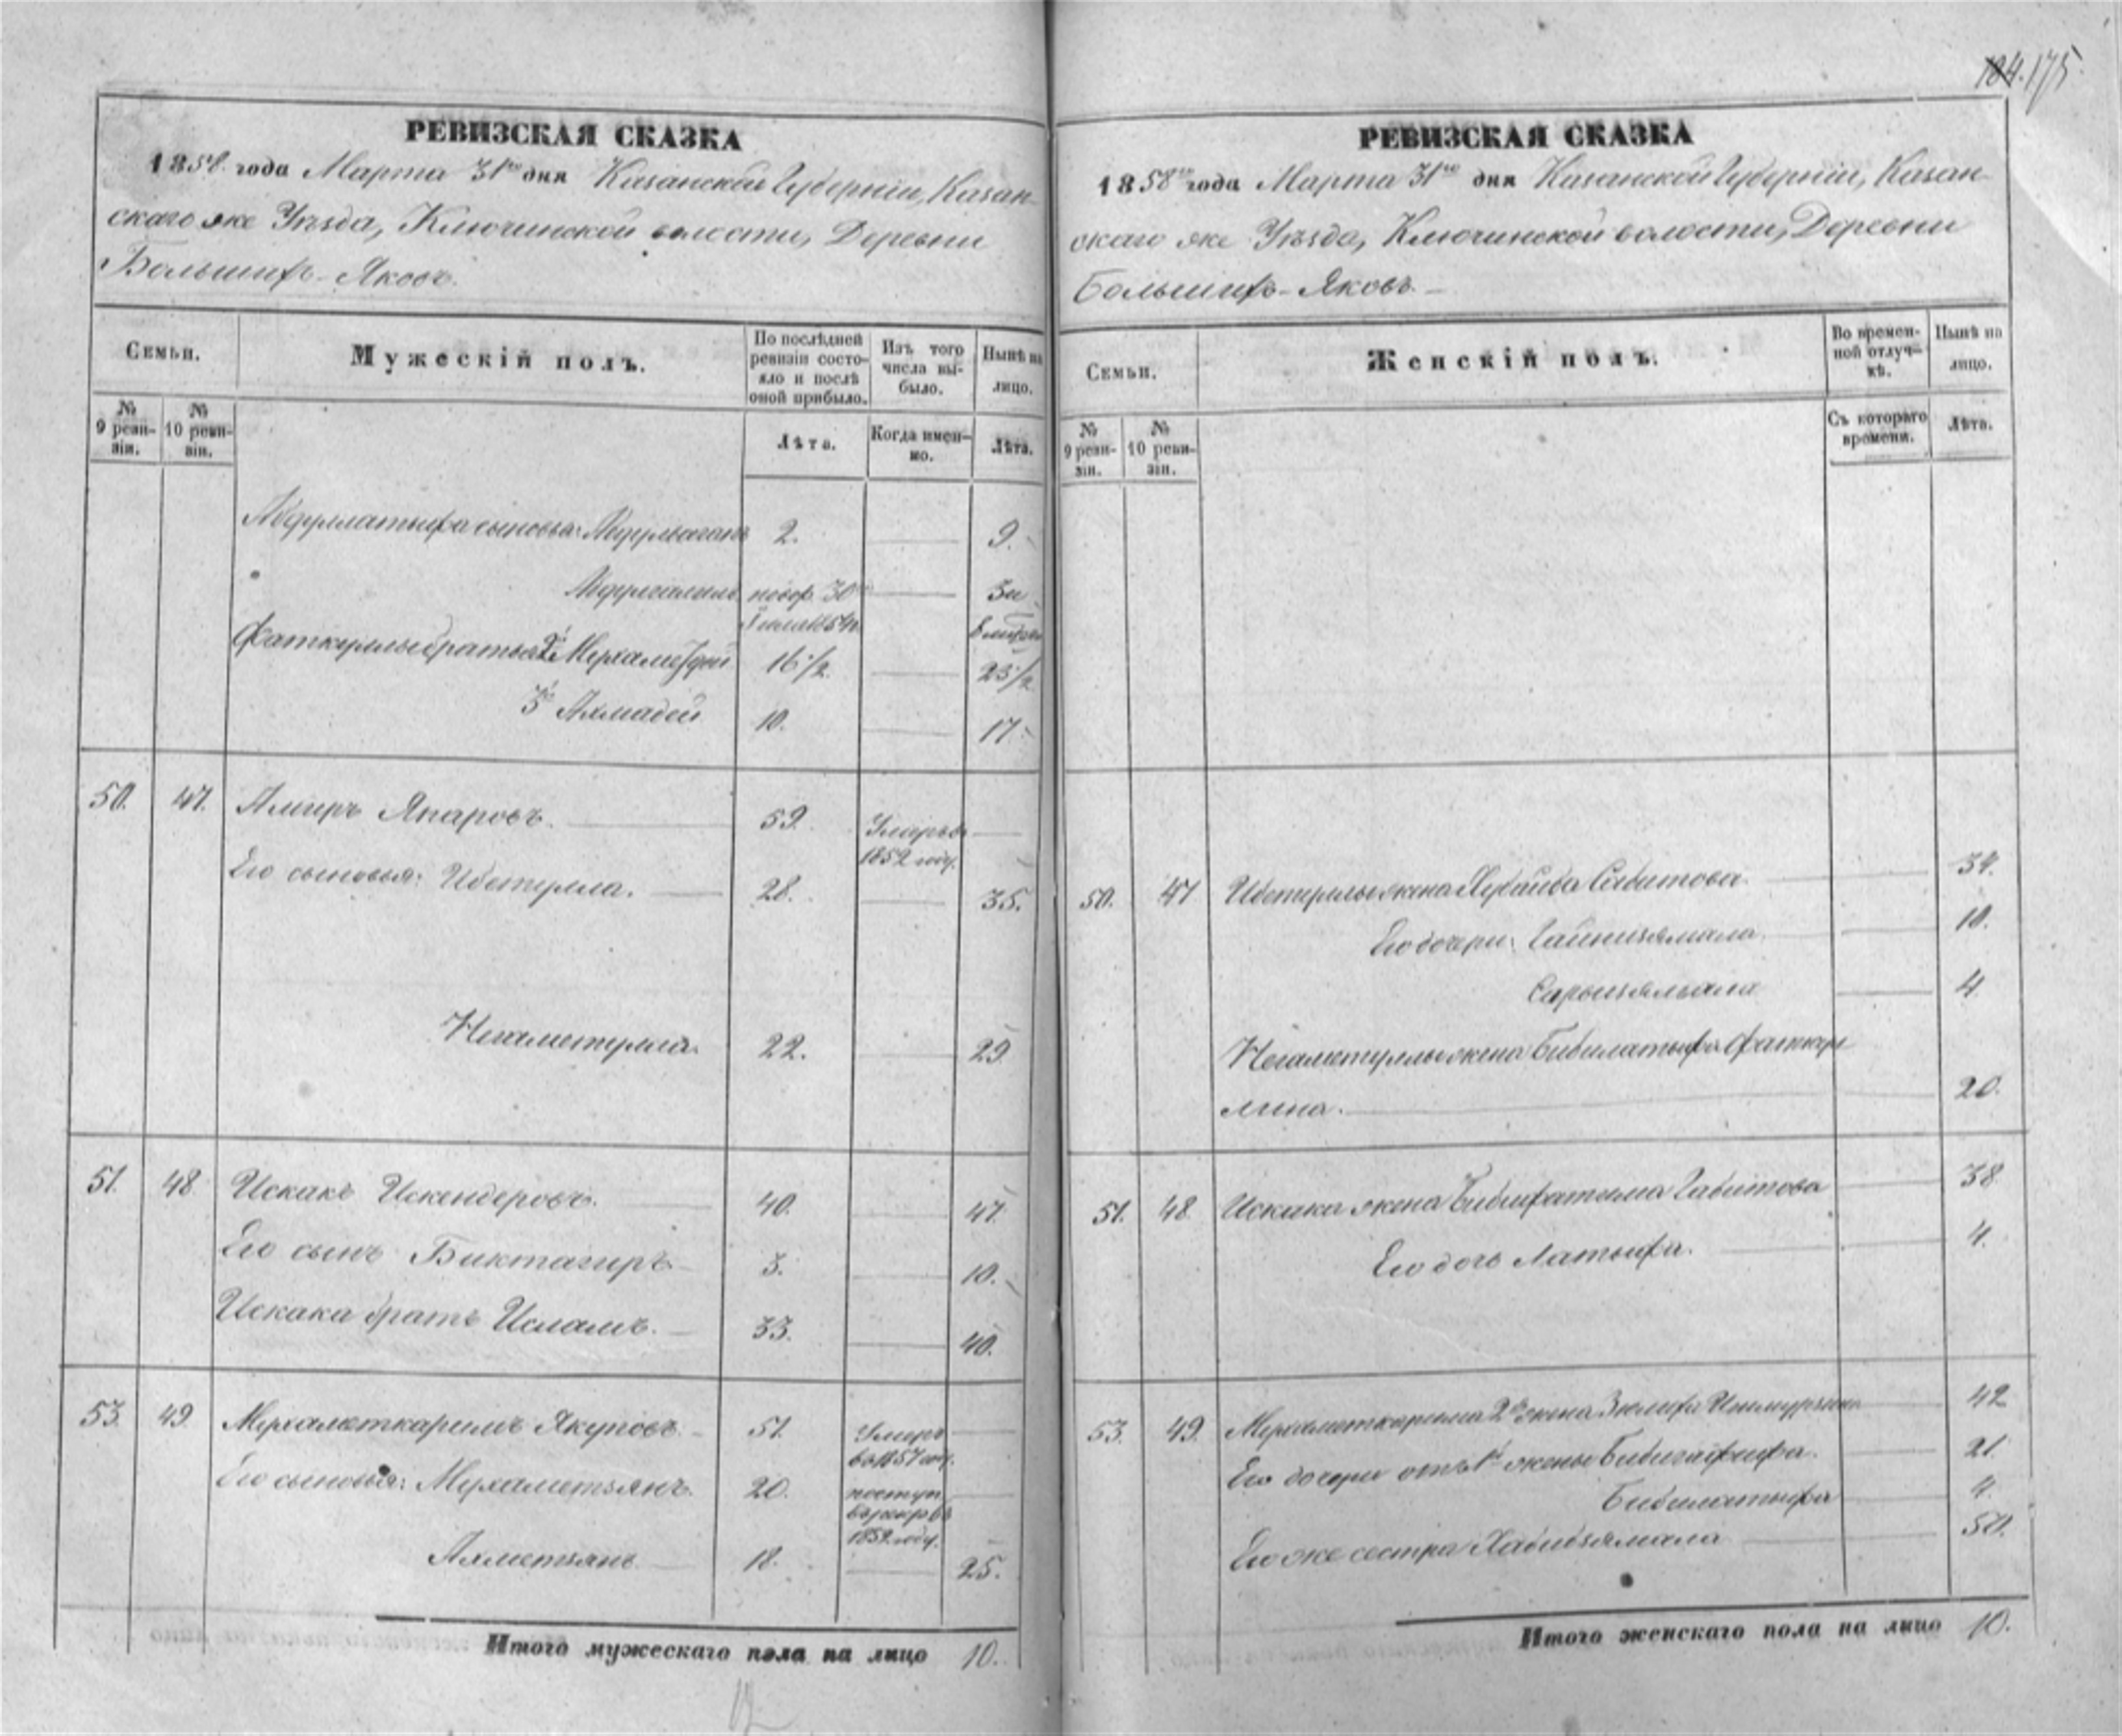 184. 175.
РЕВИЗСКАЯ СКАЗКА
1858 года Марта 31го дня Казанской Губерніи, Казан-
скаго же Уѣзда, Ключинской волости, Деревни
Большихъ-Яковъ.
Семьи.
Мужескій полъ.
По послѣдней ревизіи состояло и послѣ оной прибыло.
Изъ того числа выбыло.
Нынѣ на лицо.
№ 9 ревизіи.
№ 10 ревизіи.
Лѣта.
Когда именно.
Лѣта.
Абдуллатыфа сыновья: 2. 9.
новор. 30
Фаткуллы братья 2й 16 1/2 23 1/2
3й Ахмадей 10. 17.
50. 47. Амиръ Япаровъ. 59. Умеръ въ
1852 году.
Его сыновья: Ибетулла. 28. 35.
Негаметулла. 22. 29.
51. 48. Искакъ Искендеровъ. 40. 47.
Его сынъ Биктагиръ 3. 10.
Искака братъ Исламъ. 33. 40.
53. 49. Мухаметкаримъ Якуповъ. 51. Умеръ
въ 1857 году.
Его сыновья: Мухаметзянъ. 20. поступ.
въ рекр. въ
1852 году.
Ахметзянъ 18. 25.
Итого мужескаго пола на лицо 10.
12
РЕВИЗСКАЯ СКАЗКА
1858го года Марта 31го дня Казанской Губерніи, Казан-
скаго же Уѣзда, Ключинской волости, Деревни
Большихъ-Яковъ.
Семьи.
Женскій полъ.
Во временной отлучкѣ.
Нынѣ на лицо.
№ 9 ревизіи.
№ 10 ревизіи.
Съ котораго времени.
Лѣта.
50. 47 Ибетуллы жена Сабитова. 34.
Его дочери: Гайнизямала. 10.
4.
Негаметуллы жена Бибилатыфа Фаткул
лина. 20.
51. 48. Искака жена Бибифатима Габитова 38
Его дочь Латыфа. 4.
53. 49. Мухаметкарима 2я жена Зюлифа 42
Его дочери отъ 1й жены Бибигафифа. 21.
Бибилатыфа 4.
Его же сестра Хабибзямала 50.
Итого женскаго пола на лицо 10.